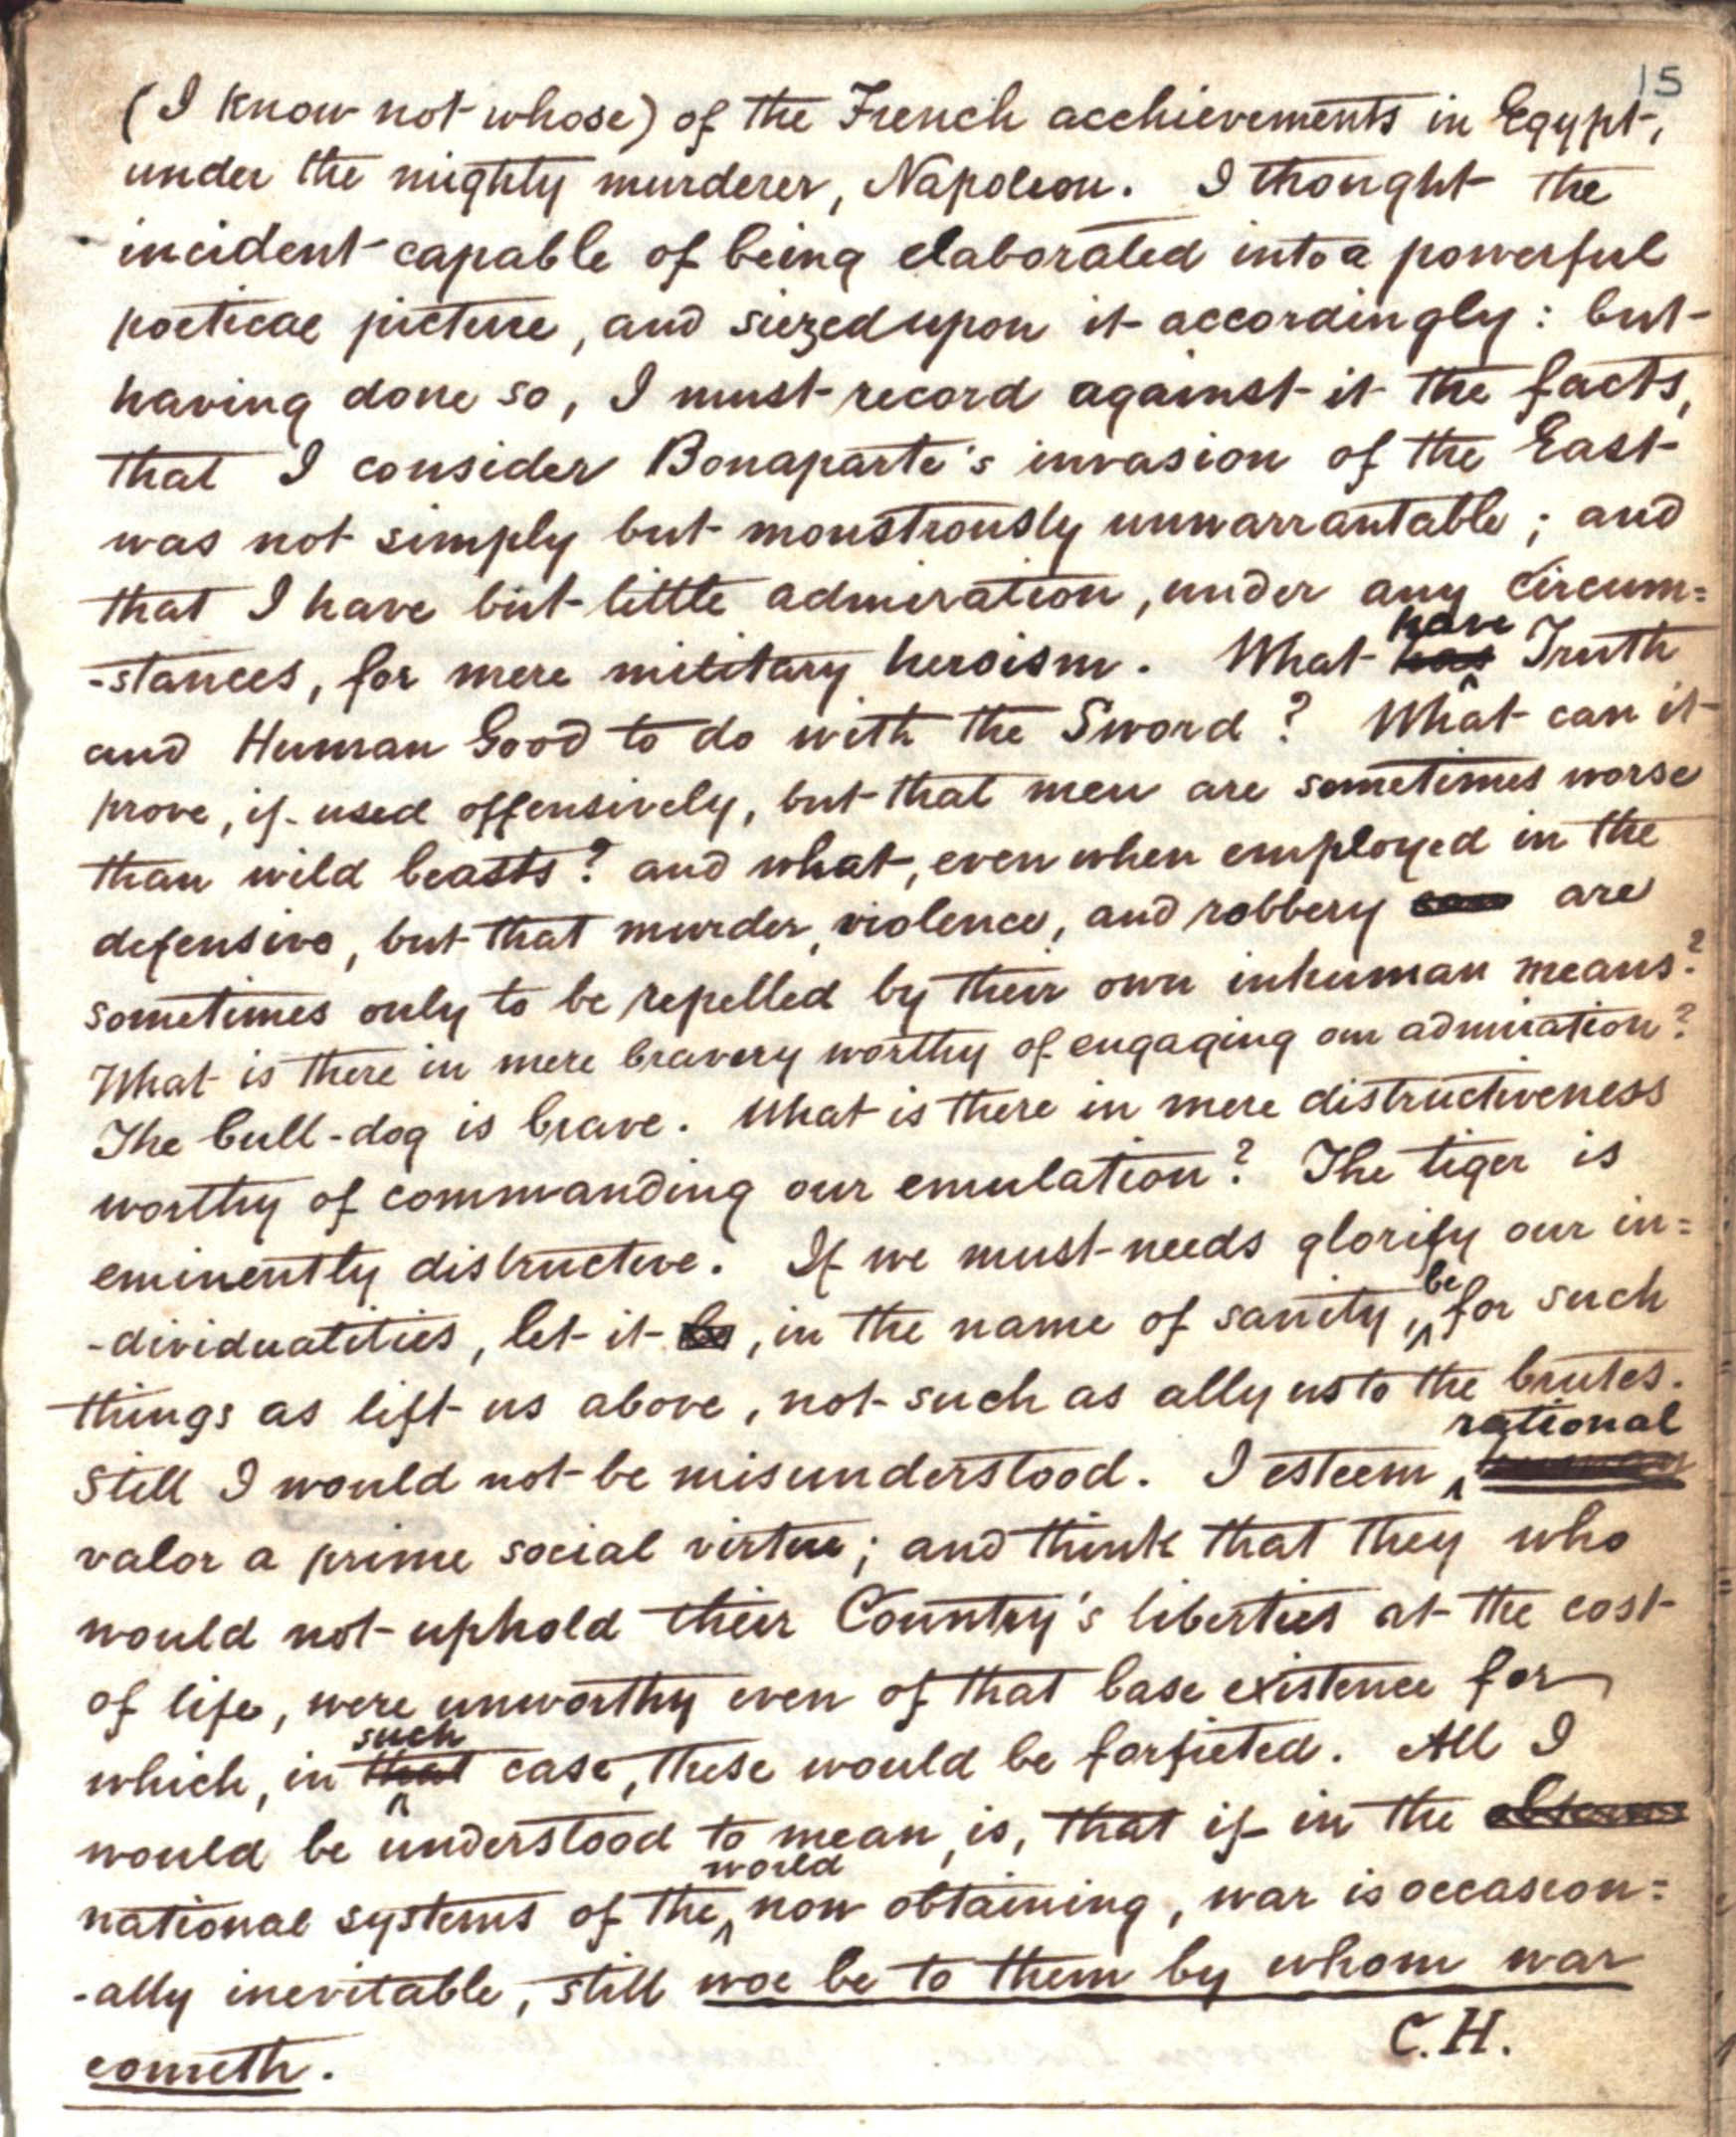 15
(I know not whose) of the French acchievements in Egypt,
under the mighty murderer, Napoleon. I thought the
incident capable of being elaborated into a powerful
poetical picture, and siezed upon it accordingly: but
having done so, I must record against it the facts,
that I consider Bonaparte's invasion of the East
was not simply but monstrously unwarrantable; and
that I have but little admiration, under any circum=
-stances, for mere military heroism. What has have Truth
and Human Good to do with the Sword? What can it
prove, if used offensively, but that men are sometimes worse
than wild beasts? and what, even when employed in the
defensive, but that murder, violence, and robbery are
sometimes only to be repelled by their own inhuman means?
What is there in mere bravery worthy of engaging our admiration?
The bull-dog is brave. What is there in mere distructiveness
worthy of commanding our emulation? The tiger is
eminently distructive. If we must needs glorify our in=
-dividualities, let it be, in the name of sanity, be for such
things as lift us above, not such as ally us to the brutes.
Still I would not be misunderstood. I esteem rational
valor a prime social virtue; and think that they who
would not uphold their Country's liberties at the cost
of life, were unworthy even of that base existence for
which, in that such case, these would be forfieted. All I
would be understood to mean, is, that if in the
national systems of the world now obtaining, war is occasion=
-ally inevitable, still woe be to them by whom war
cometh.
C.H.